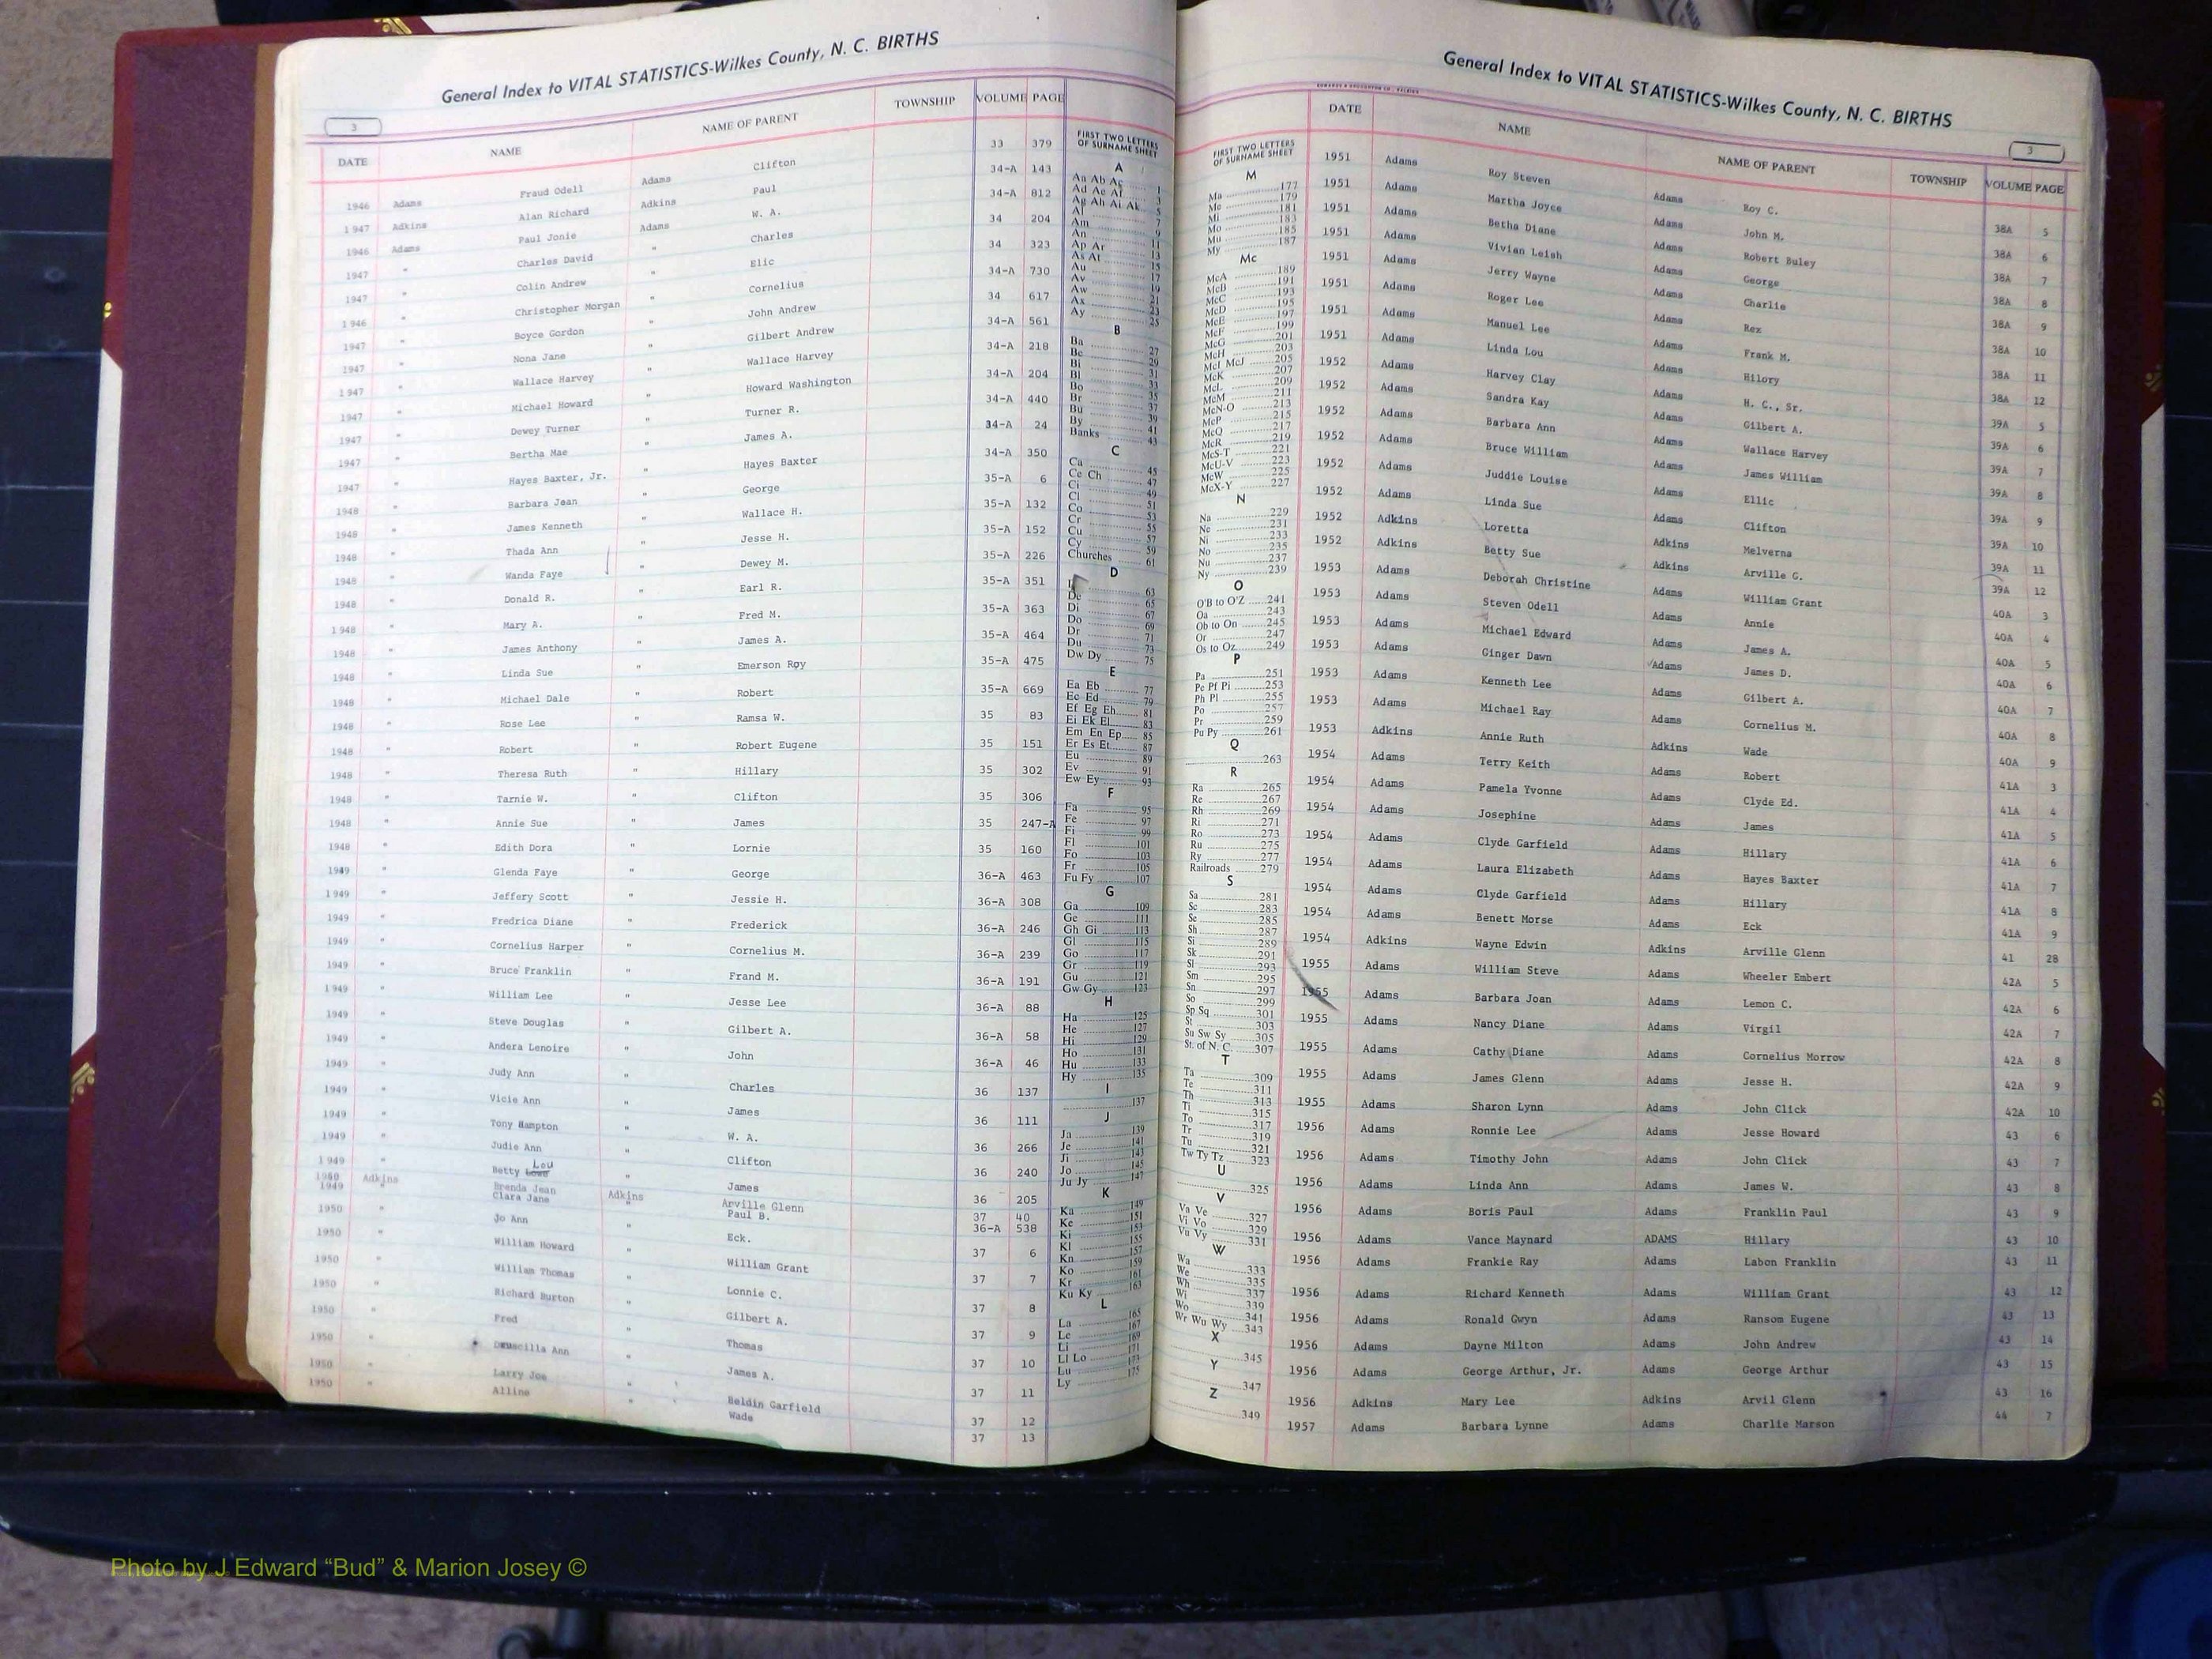 General Index to VITAL STATISTICS-Wilkes County, N. C. BIRTHS
3
DATE NAME NAME OF PARENT TOWNSHIP VOLUME PAGE
1946 Adams Fraud Odell Adams Clifton 33 379
1947 Adkins Alan Richard Adkins Paul 34-A 143
1946 Adams Paul Jonie Adams W. A. 34-A 812
1947 " Charles David " Charles 34 204
1947 " Colin Andrew " Elic 34 323
1946 " Christopher Morgan " Cornelius 34-A 730
1947 " Boyce Gordon " John Andrew 34 617
1947 " Nona Jane " Gilbert Andrew 34-A 561
1947 " Wallace Harvey " Wallace Harvey 34-A 218
1947 " Michael Howard " Howard Washington 34-A 204
1947 " Dewey Turner " Turner R. 34-A 440
1947 " Bertha Mae " James A. 34-A 24
1947 " Hayes Baxter, Jr. " Hayes Baxter 34-A 350
1948 " Barbara Jean " George 35-A 6
1948 " James Kenneth " Wallace H. 35-A 132
1948 " Thada Ann " Jesse H. 35-A 152
1948 " Wanda Faye " Dewey M. 35-A 226
1948 " Donald R. " Earl R. 35-A 351
1948 " Mary A. " Fred M. 35-A 363
1948 " James Anthony " James A. 35-A 464
1948 " Linda Sue " Emerson Roy 35-A 475
1948 " Michael Dale " Robert 35-A 669
1948 " Rose Lee " Ramsa W. 35 83
1948 " Robert " Robert Eugene 35 151
1948 " Theresa Ruth " Hillary 35 302
1948 " Tarnie W. " Clifton 35 306
1948 " Annie Sue " James 35 247-A
1948 " Edith Dora " Lornie 35 160
1949 " Glenda Faye " George 36-A 463
1949 " Jeffery Scott " Jessie H. 36-A 308
1949 " Fredrica Diane " Frederick 36-A 246
1949 " Cornelius Harper " Cornelius M. 36-A 239
1949 " Bruce Franklin " Frand M. 36-A 191
1949 " William Lee " Jesse Lee 36-A 88
1949 " Steve Douglas " Gilbert A. 36-A 58
1949 " Andera Lenoire " John 36-A 46
1949 " Judy Ann " Charles 36 137
1949 " Vicie Ann " James 36 111
1949 " Tony Hampton " W. A. 36 266
1949 " Judie Ann " Clifton 36 240
1949 " Betty Lou " James 36 205
Adkins Brenda Jean Adkins Arville Glenn 37 40
1949 " Clara Jane " Paul B. 36-A 538
1950 " Jo Ann " Eck. 37 6
1950 " William Howard " William Grant 37 7
1950 " William Thomas " Lonnie C. 37 8
1950 " Richard Burton " Gilbert A. 37 9
1950 " Fred " Thomas 37 10
1950 " Ann " James A. 37 11
1950 " Larry Joe " Beldin Garfield 37 12
1950 " Alline " Wade 37 13
FIRST TWO LETTERS
OF SURNAME SHEET
A
Aa Ab Ac 1
Ad Ae Af 3
Ag Ah Ai Ak 5
Al 7
Am 9
An 11
Ap Ar 13
As At 15
Au 17
Av 19
Aw 21
Ax 23
Ay 25
B
Ba 27
Be 29
Bi 31
Bl 33
Bo 35
Br 37
Bu 39
By 41
Banks 43
C
Ca 45
Ce Ch 47
Ci 49
Cl 51
Co 53
Cr 55
Cu 57
Cy 59
Churches 61
D
63
De 65
Di 67
Do 69
Dr 71
Du 73
Dw Dy 75
E
Ea Eb 77
Ec Ed 79
Ef Eg Eh 81
Ei Ek El 83
Em En Ep 85
Er Es Et 87
Eu 89
Ev 91
Ew Ey 93
F
Fa 95
Fe 97
Fi 99
Fl 101
Fo 103
Fr 105
Fu Fy 107
G
Ga 109
Ge 111
Gh Gi 113
Gl 115
Go 117
Gr 119
Gu 121
Gw Gy 123
H
Ha 125
He 127
Hi 129
Ho 131
Hu 133
Hy 135
I
137
J
Ja 139
Je 141
Ji 143
Jo 145
Ju Jy 147
K
Ka 149
Ke 151
Ki 153
Kl 155
Kn 157
Ko 159
Kr 161
Ku Ky 163
L
La 165
Le 167
Li 169
Ll Lo 171
Lu 173
Ly 175
General Index to VITAL STATISTICS-Wilkes County, N. C. BIRTHS
3
FIRST TWO LETTERS
OF SURNAME SHEET
M
Ma 177
Me 179
Mi 181
Mo 183
Mu 185
My 187
Mc
McA 189
McB 191
McC 193
McD 195
McE 197
McF 199
McG 201
McH 203
McI McJ 205
McK 207
McL 209
McM 211
McN-O 213
McP 215
McQ 217
McR 219
McS-T 221
McU-V 223
McW 225
McX-Y 227
N
Na 229
Ne 231
Ni 233
No 235
Nu 237
Ny 239
O
O'B to O'Z 241
Oa 243
Ob to On 245
Or 247
Os to Oz 249
P
Pa 251
Pe Pf Pi 253
Ph Pl 255
Po 257
Pr 259
Pu Py 261
Q
263
R
Ra 265
Re 267
Rh 269
Ri 271
Ro 273
Ru 275
Ry 277
Railroads 279
S
Sa 281
Sc 283
Se 285
Sh 287
Si 289
Sk 291
Sl 293
Sm 295
Sn 297
So 299
Sp Sq 301
St 303
Su Sw Sy 305
St. of N. C. 307
T
Ta 309
Te 311
Th 313
Ti 315
To 317
Tr 319
Tu 321
Tw Ty Tz 323
U
325
V
Va Ve 327
Vi Vo 329
Vu Vy 331
W
Wa 333
We 335
Wh 337
Wi 339
Wo 341
Wr Wu Wy 343
X
345
Y
347
Z
349
DATE NAME NAME OF PARENT TOWNSHIP VOLUME PAGE
1951 Adams Roy Steven Adams Roy C. 38A 5
1951 Adams Martha Joyce Adams John M. 38A 6
1951 Adams Betha Diane Adams Robert Buley 38A 7
1951 Adams Vivian Leish Adams George 38A 8
1951 Adams Jerry Wayne Adams Charlie 38A 9
1951 Adams Roger Lee Adams Rex 38A 10
1951 Adams Manuel Lee Adams Frank M. 38A 11
1951 Adams Linda Lou Adams Hilory 38A 12
1952 Adams Harvey Clay Adams H. C., Sr. 39A 5
1952 Adams Sandra Kay Adams Gilbert A. 39A 6
1952 Adams Barbara Ann Adams Wallace Harvey 39A 7
1952 Adams Bruce William Adams James William 39A 8
1952 Adams Juddie Louise Adams Ellic 39A 9
1952 Adams Linda Sue Adams Clifton 39A 10
1952 Adkins Loretta Adkins Melverna 39A 11
1952 Adkins Betty Sue Adkins Arville G. 39A 12
1953 Adams Deborah Christine Adams William Grant 40A 3
1953 Adams Steven Odell Adams Annie 40A 4
1953 Adams Michael Edward Adams James A. 40A 5
1953 Adams Ginger Dawn Adams James D. 40A 6
1953 Adams Kenneth Lee Adams Gilbert A. 40A 7
1953 Adams Michael Ray Adams Cornelius M. 40A 8
1953 Adkins Annie Ruth Adkins Wade 40A 9
1954 Adams Terry Keith Adams Robert 41A 3
1954 Adams Pamela Yvonne Adams Clyde Ed. 41A 4
1954 Adams Josephine Adams James 41A 5
1954 Adams Clyde Garfield Adams Hillary 41A 6
1954 Adams Laura Elizabeth Adams Hayes Baxter 41A 7
1954 Adams Clyde Garfield Adams Hillary 41A 8
1954 Adams Benett Morse Adams Eck 41A 9
1954 Adkins Wayne Edwin Adkins Arville Glenn 41 28
1955 Adams William Steve Adams Wheeler Embert 42A 5
1955 Adams Barbara Joan Adams Lemon C. 42A 6
1955 Adams Nancy Diane Adams Virgil 42A 7
1955 Adams Cathy Diane Adams Cornelius Morrow 42A 8
1955 Adams James Glenn Adams Jesse H. 42A 9
1955 Adams Sharon Lynn Adams John Click 42A 10
1956 Adams Ronnie Lee Adams Jesse Howard 43 6
1956 Adams Timothy John Adams John Click 43 7
1956 Adams Linda Ann Adams James W. 43 8
1956 Adams Boris Paul Adams Franklin Paul 43 9
1956 Adams Vance Maynard ADAMS Hillary 43 10
1956 Adams Frankie Ray Adams Labon Franklin 43 11
1956 Adams Richard Kenneth Adams William Grant 43 12
1956 Adams Ronald Gwyn Adams Ransom Eugene 43 13
1956 Adams Dayne Milton Adams John Andrew 43 14
1956 Adams George Arthur, Jr. Adams George Arthur 43 15
1956 Adkins Mary Lee Adkins Arvil Glenn 43 16
1957 Adams Barbara Lynne Adams Charlie Marson 44 7
Photo by J Edward “Bud” & Marion Josey ©